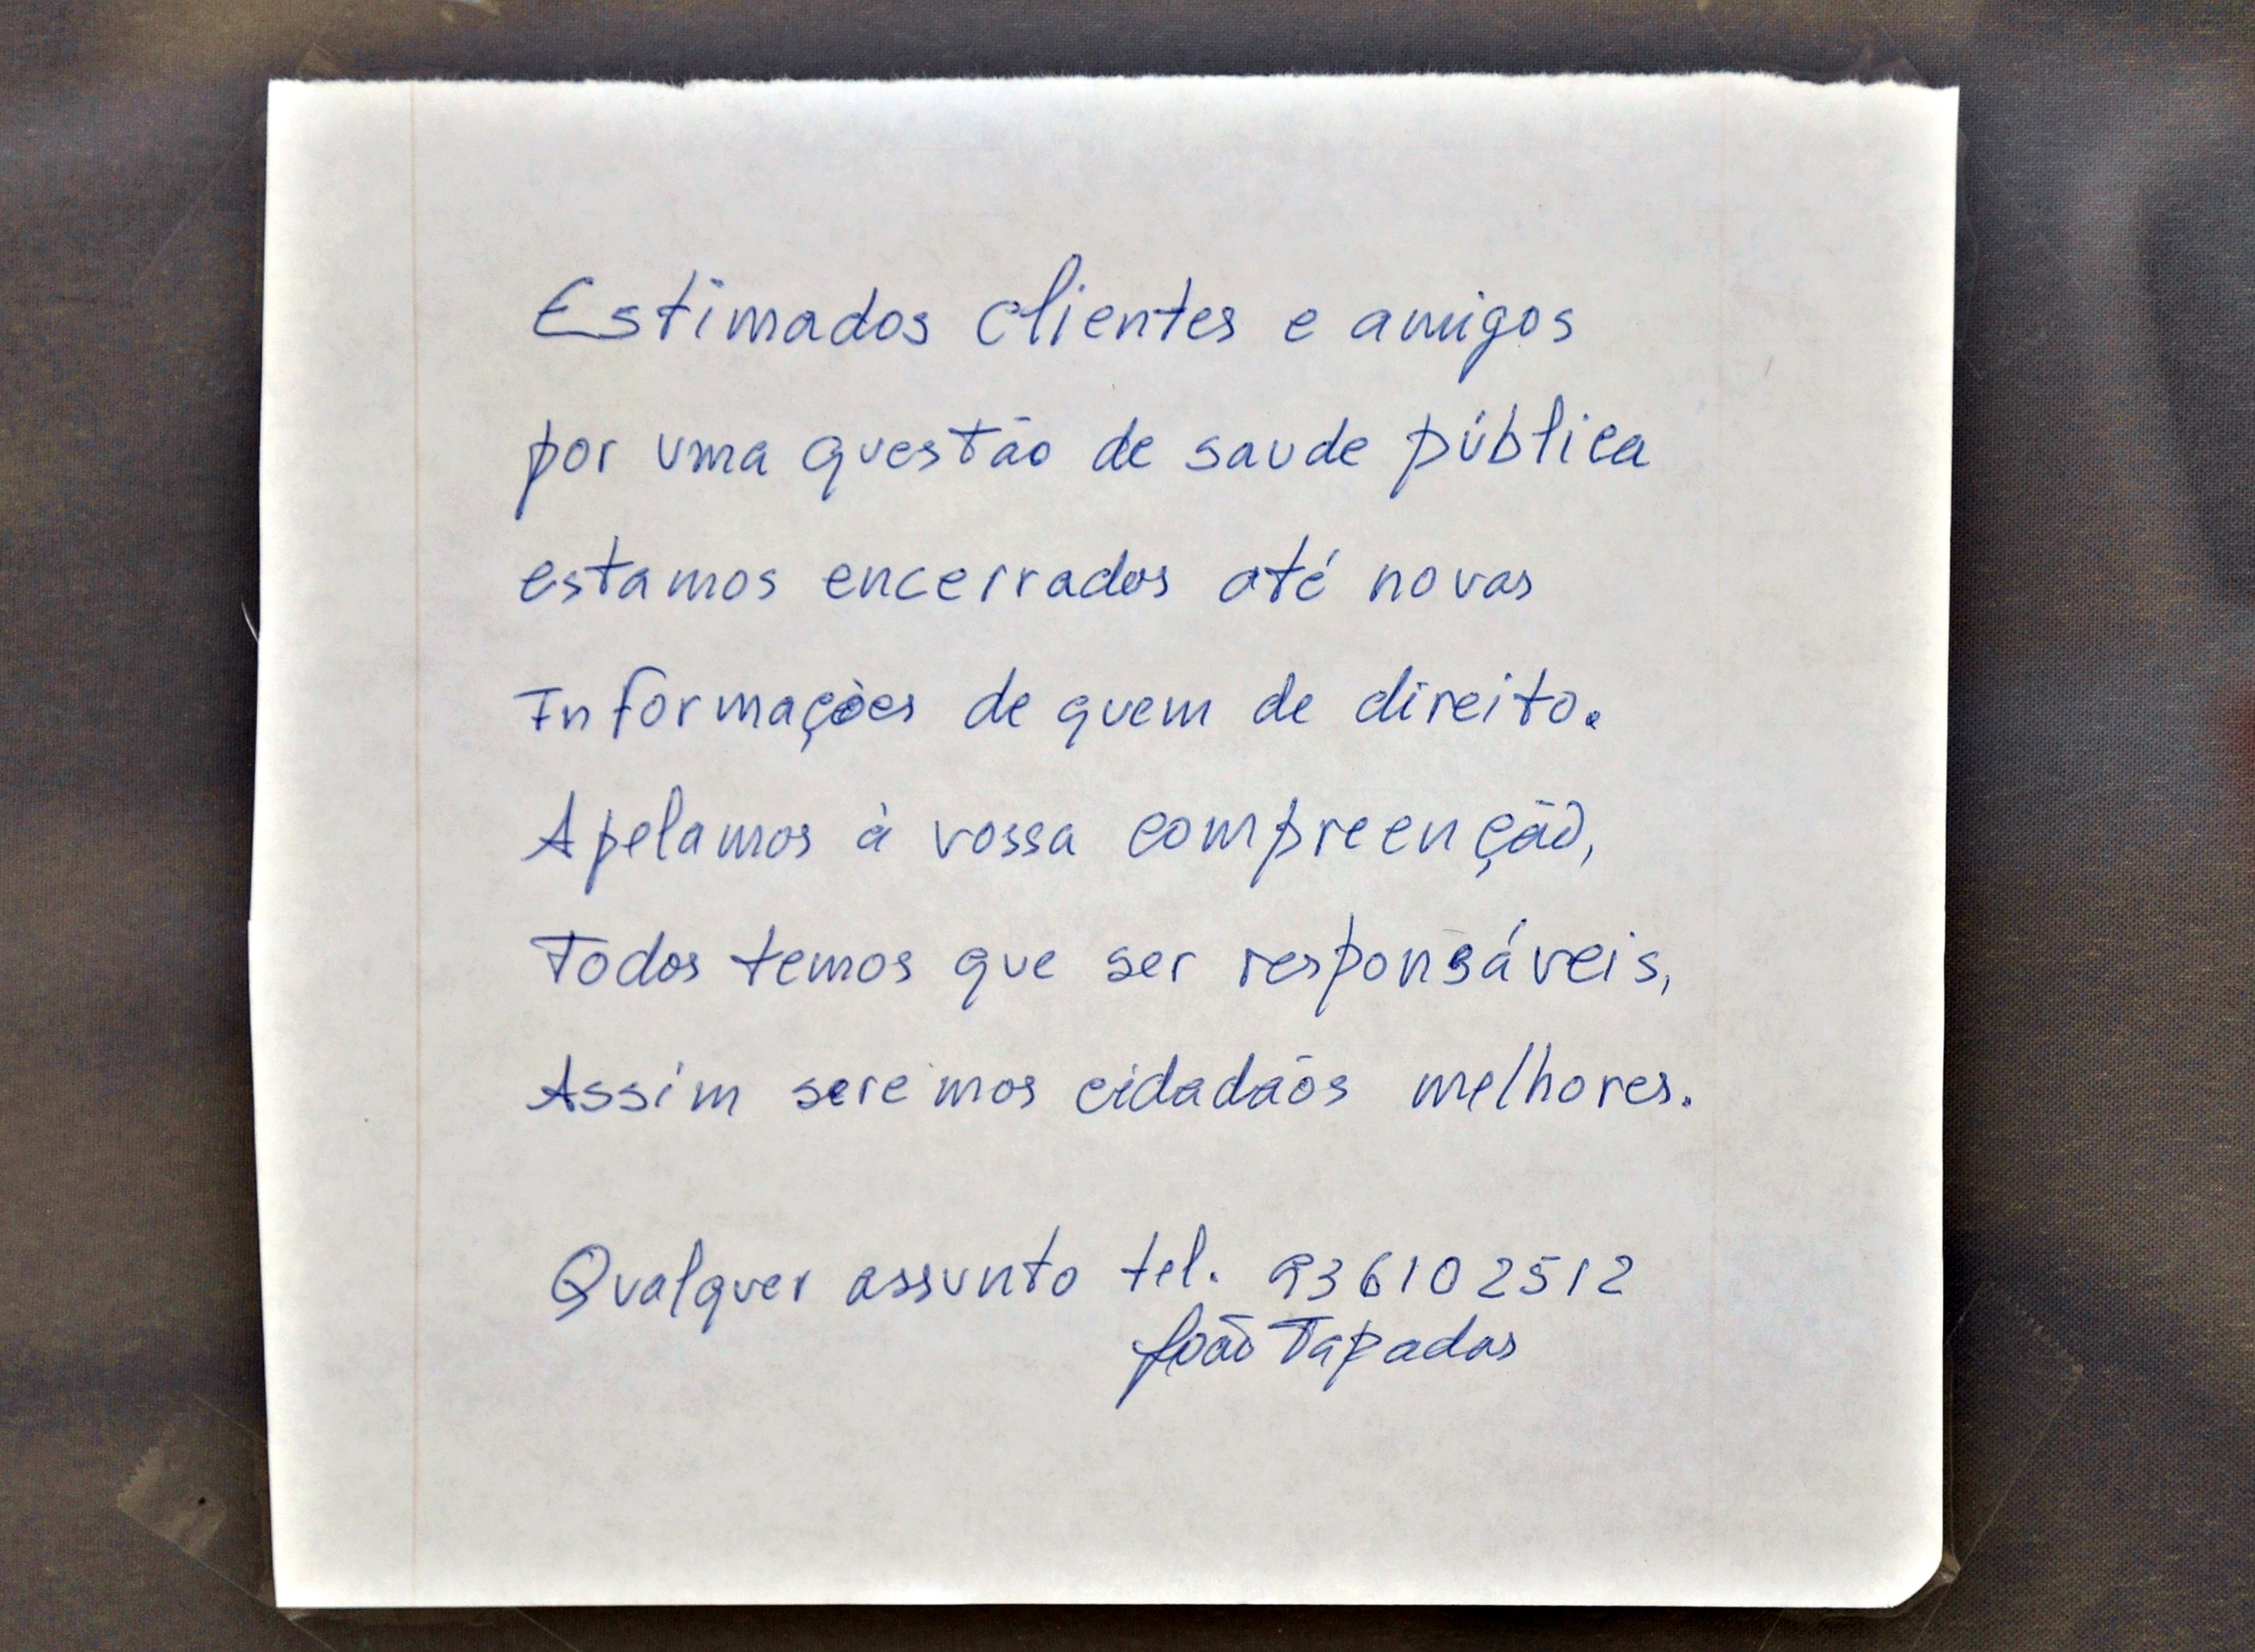 Estimados clientes e amigos
por uma questão de saude pública
estamos encerrados até novas
Informações de quem de direito.
Apelamos à vossa compreenção,
Todos temos que ser responsáveis,
Assim seremos cidadãos melhores.
Qualquer assunto tel. 936102512
João Tapadas